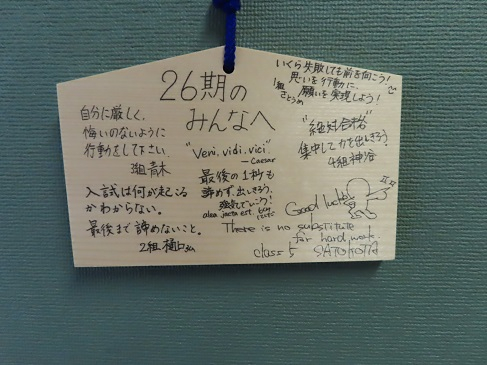 26期の
みんなへ
自分に厳しく、
悔いのないように
行動をして下さい。
青木
入試は何が起こる
かわからない。
最後まで諦めないこと。
2組 樋口
"Veni, vidi, vici."
— Caesar
最後の1秒も
諦めず、出しきろう。
強気でいこう!
alea jacta est.
いくら失敗しても前を向こう!
思いを行動に、
願いを実現しよう!
1組
さとうゆ
"絶対合格"
集中して力を出しきろう。
4組 神谷
Good luck!
There is no substitute
for hard work
class 5